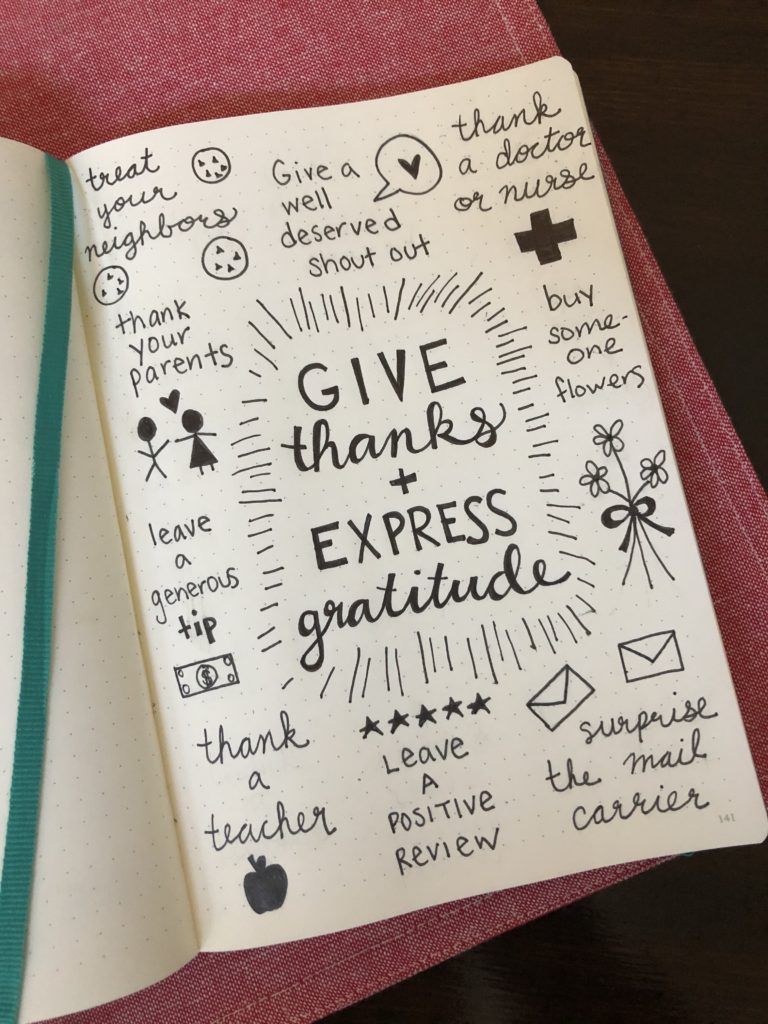 treat
your
neighbors
Give a
well
deserved
shout out
thank
a doctor
or nurse
thank
your
parents
buy
some-
one
flowers
GIVE
thanks
+
EXPRESS
gratitude
leave
a
generous
tip
$
thank
a
teacher
LEAVE
A
POSITIVE
REVIEW
surprise
the mail
carrier
141